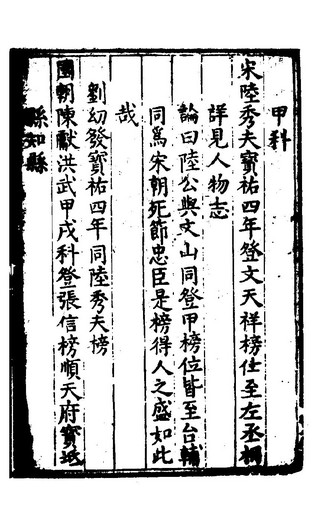 甲科
宋陸秀夫寳祐四年登文天祥榜仕至左丞相
詳見人物志
論曰陸公與文山同登甲榜位皆至台輔
同爲宋朝死節忠臣是榜得人之盛如此
哉
劉幼發寳祐四年同陸秀夫榜
國朝陳獻洪武甲戌科登張信榜順天府寳坻
縣知縣